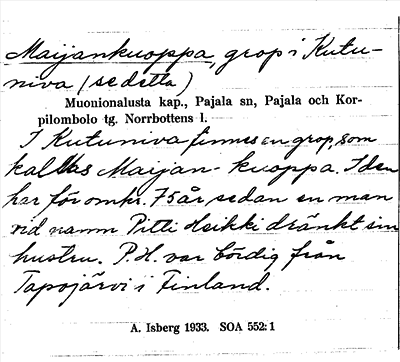 Maijankuoppa, grop i Kutu-
niva (se detta)
Muonionalusta kap., Pajala sn, Pajala och Kor-
pilombolo tg. Norrbottens l.
I Kutuniva finnes en grop, som
kallas Maijan-kuoppa. I den
har för omkr. 75 år sedan en man
vid namn Pitti Heikki dränkt sin
hustru. P.H. var bördig från
Tapojärvi i Finland.
A. Isberg 1933. SOA 552:1